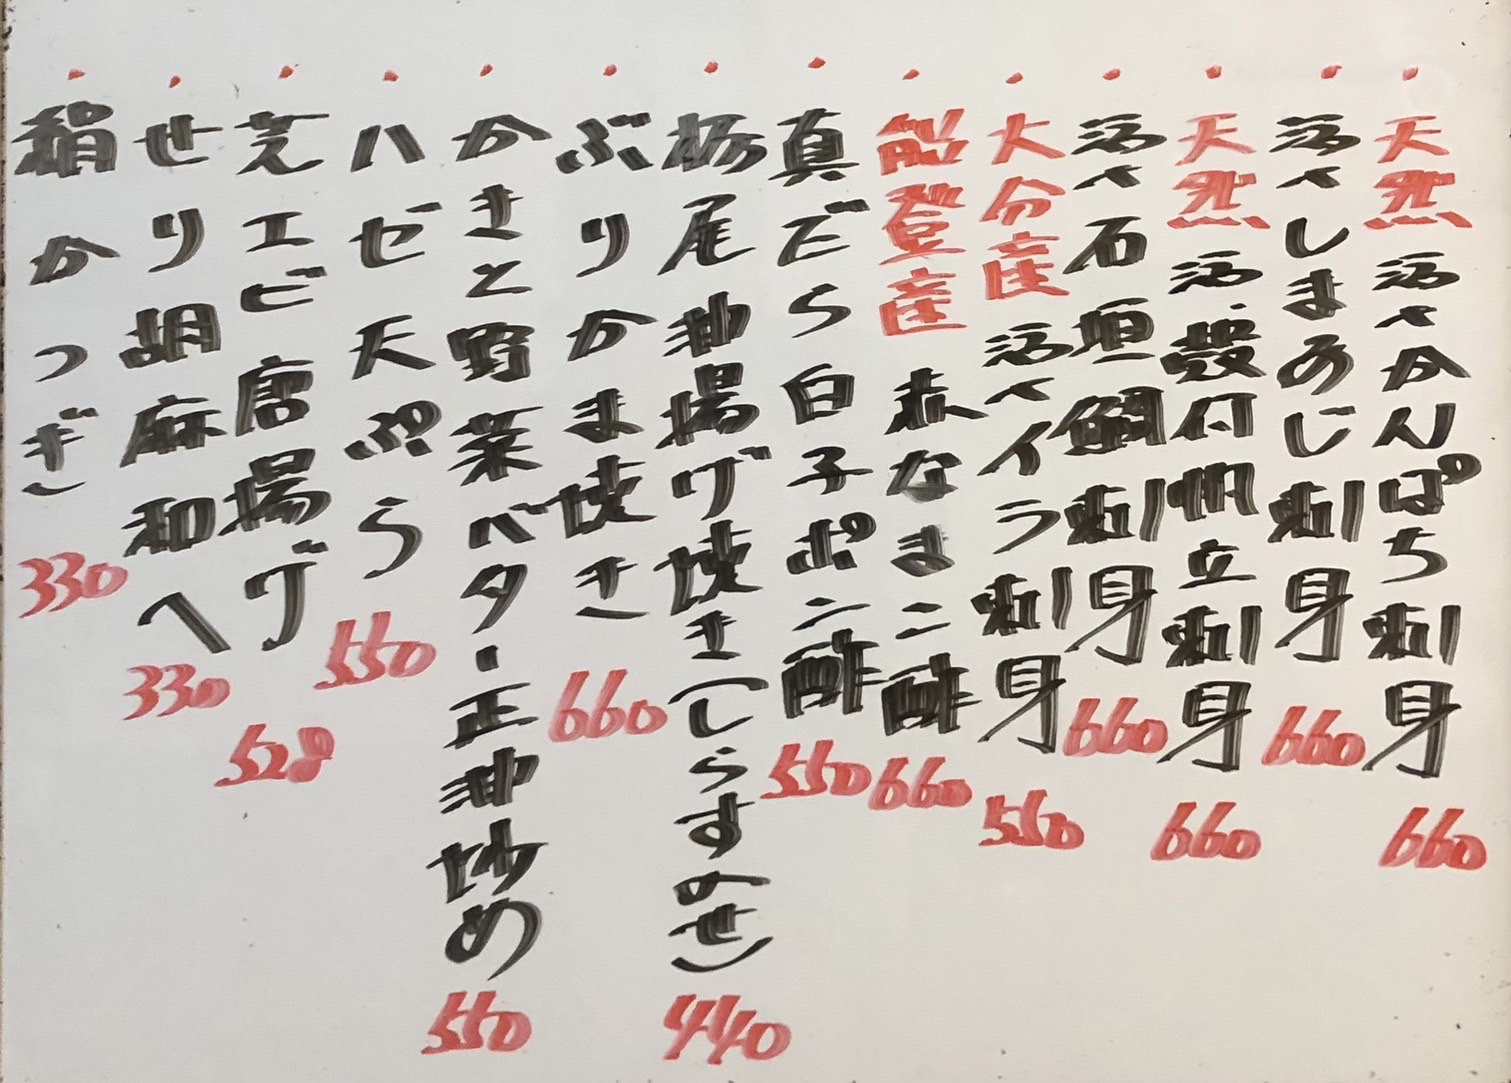 天然 活〆かんぱち刺身 660
活〆しまあじ刺身 660
天然 活、殻付帆立刺身 660
活〆石垣鯛刺身 660
大分産 活〆イラ刺身 550
能登産 赤なまこ酢 660
真だら白子ポン酢 550
栃尾油揚げ焼き(しらすのせ) 440
ぶりかま焼き 660
かきと野菜バター正油炒め 550
ハゼ天ぷら 550
芝エビ唐揚げ 528
せり胡麻和へ 330
絹かつぎ 330